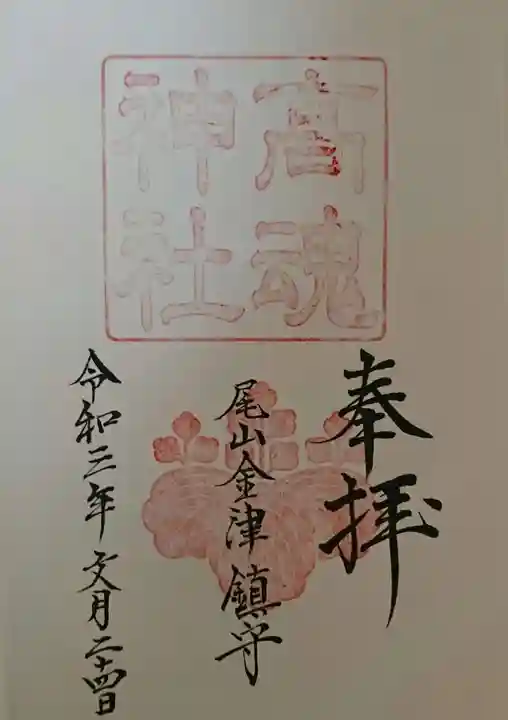 高魂
神社
奉拝
尾山金津鎮守
令和三年文月二十四日